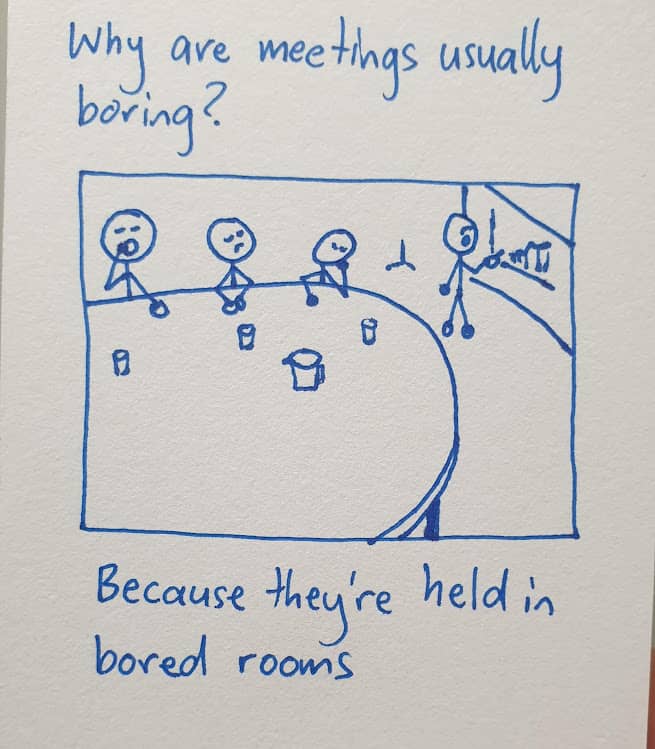 Why are meetings usually
boring?
Because they're held in
bored rooms